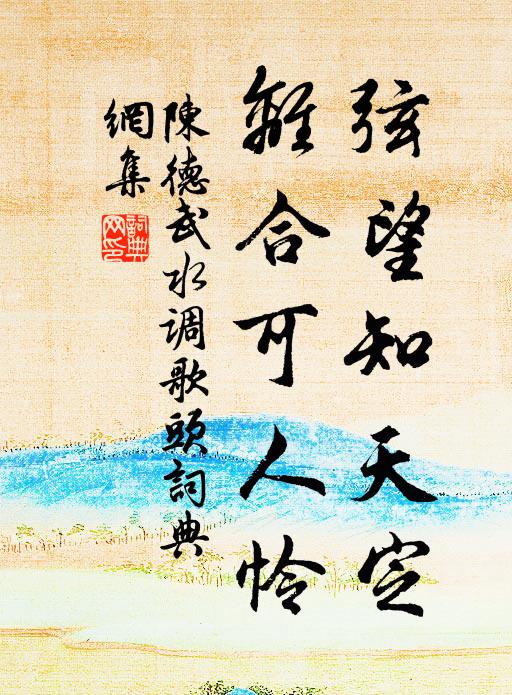 弦望知天定
離合可人怜
陳德武水调歌頭詞典
網集
詞典网印